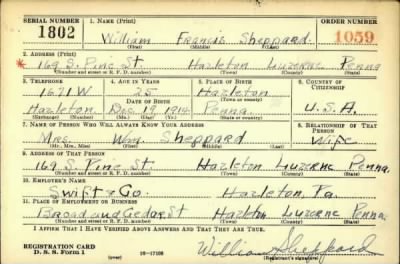 SERIAL NUMBER 1. NAME (Print) ORDER NUMBER
1802 William Francis Sheppard 1059
(First) (Middle) (Last)
2. ADDRESS (Print)
* 169 S. Pine St. Hazleton Luzerne Penna
(Number and street or R. F. D. number) (Town) (County) (State)
3. TELEPHONE 4. AGE IN YEARS 5. PLACE OF BIRTH 6. COUNTRY OF CITIZENSHIP
1671 W 25 Hazleton
DATE OF BIRTH (Town or county)
Hazleton Dec. 19 1914 Penna. U.S.A.
(Exchange) (Number) (Mo.) (Day) (Yr.) (State or country)
7. NAME OF PERSON WHO WILL ALWAYS KNOW YOUR ADDRESS 8. RELATIONSHIP OF THAT PERSON
Mrs. Wm. Sheppard Wife
(Mr., Mrs., Miss) (First) (Middle) (Last)
9. ADDRESS OF THAT PERSON
169 S. Pine St. Hazleton Luzerne Penna.
(Number and street or R. F. D. number) (Town) (County) (State)
10. EMPLOYER'S NAME
Swift & Co. Hazleton, Pa.
11. PLACE OF EMPLOYMENT OR BUSINESS
Broad and Cedar St Hazleton Luzerne Penna.
(Number and street or R. F. D. number) (Town) (County) (State)
I AFFIRM THAT I HAVE VERIFIED ABOVE ANSWERS AND THAT THEY ARE TRUE.
REGISTRATION CARD
D. S. S. Form 1 (over) 16-17105 William Sheppard
(Registrant's signature)